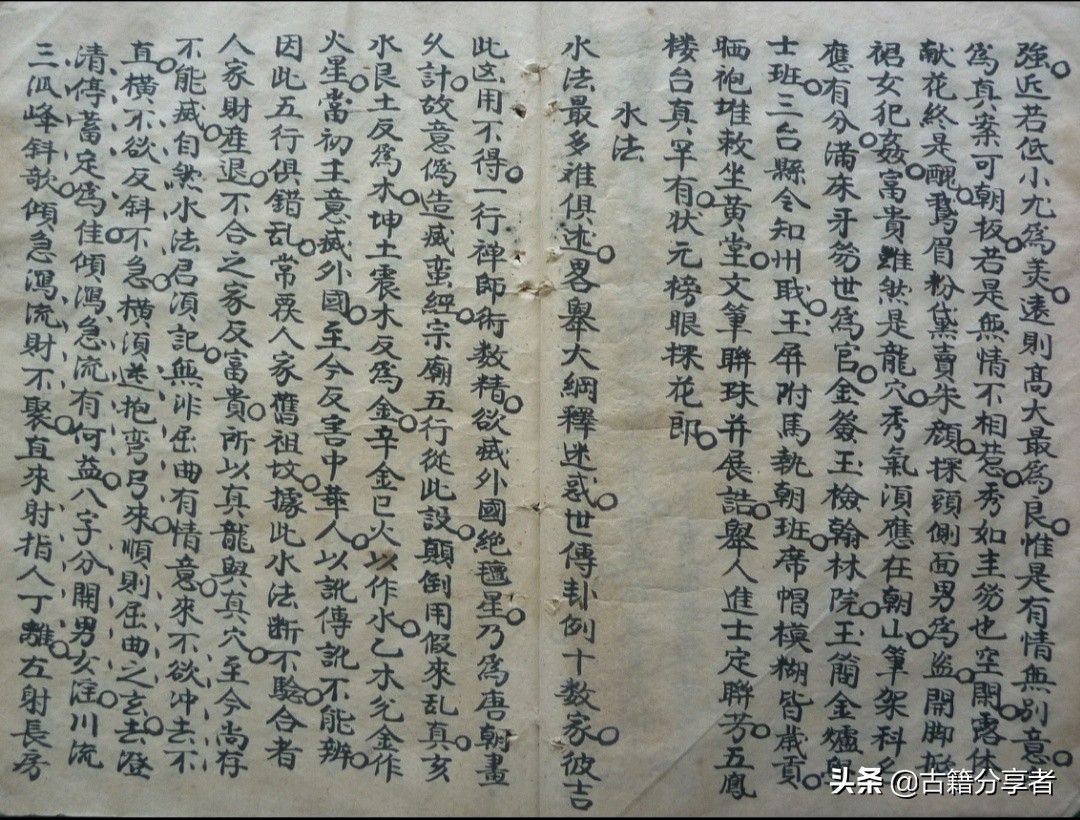 強近若低小尤為美遠則高大最為良惟是有情無別意
為真案可朝扳若是無情不相惹秀如主勞也空開露体
献花終是醜鵝眉粉黛賣朱顏探頭側面男為盜開脚
裙女犯姦富貴雖然是龍穴秀氣湏應在朝山筆架科名
應有分滿床牙笏世為官金簽玉檢翰林院玉簡金爐
士班三台縣令知州戝玉屏附馬執朝班席帽模糊皆歳貢
晒袍堆敕坐黃堂文筆聯珠并展誥舉人進士定聯芳五鳳
楼台真罕有状元榜眼探花郎
水法
水法最多难俱述畧舉大綱釋迷惑世傳卦例十数家彼吉
此凶用不得一行禅師術数精欲滅外國絶氊星乃為唐朝畫
久計故意偽造滅蛮經宗廟五行從此設顛倒用假來乱真亥
水艮土反為木坤土震木反為金辛金巳火以作水乙木兊金作
火星當初主意滅外國至今反害中華人以訛傳訛不能辨
因此五行俱錯乱常莀人家舊祖坟據此水法断不騐合者
人家財産退不合之家反富貴所以真龍與真穴至今尚存
不能滅自然水法君湏記無非屈曲有情意來不欲冲去不
直橫不欲反斜不急橫湏遶抱弯弓來順則屈曲之玄去澄
清停蓄定為佳傾瀉急流有何益八字分開男女淫川流
三瓜峰斜歌傾急瀉流財不聚直來射指人丁離左射長房
头条 @古籍分享者